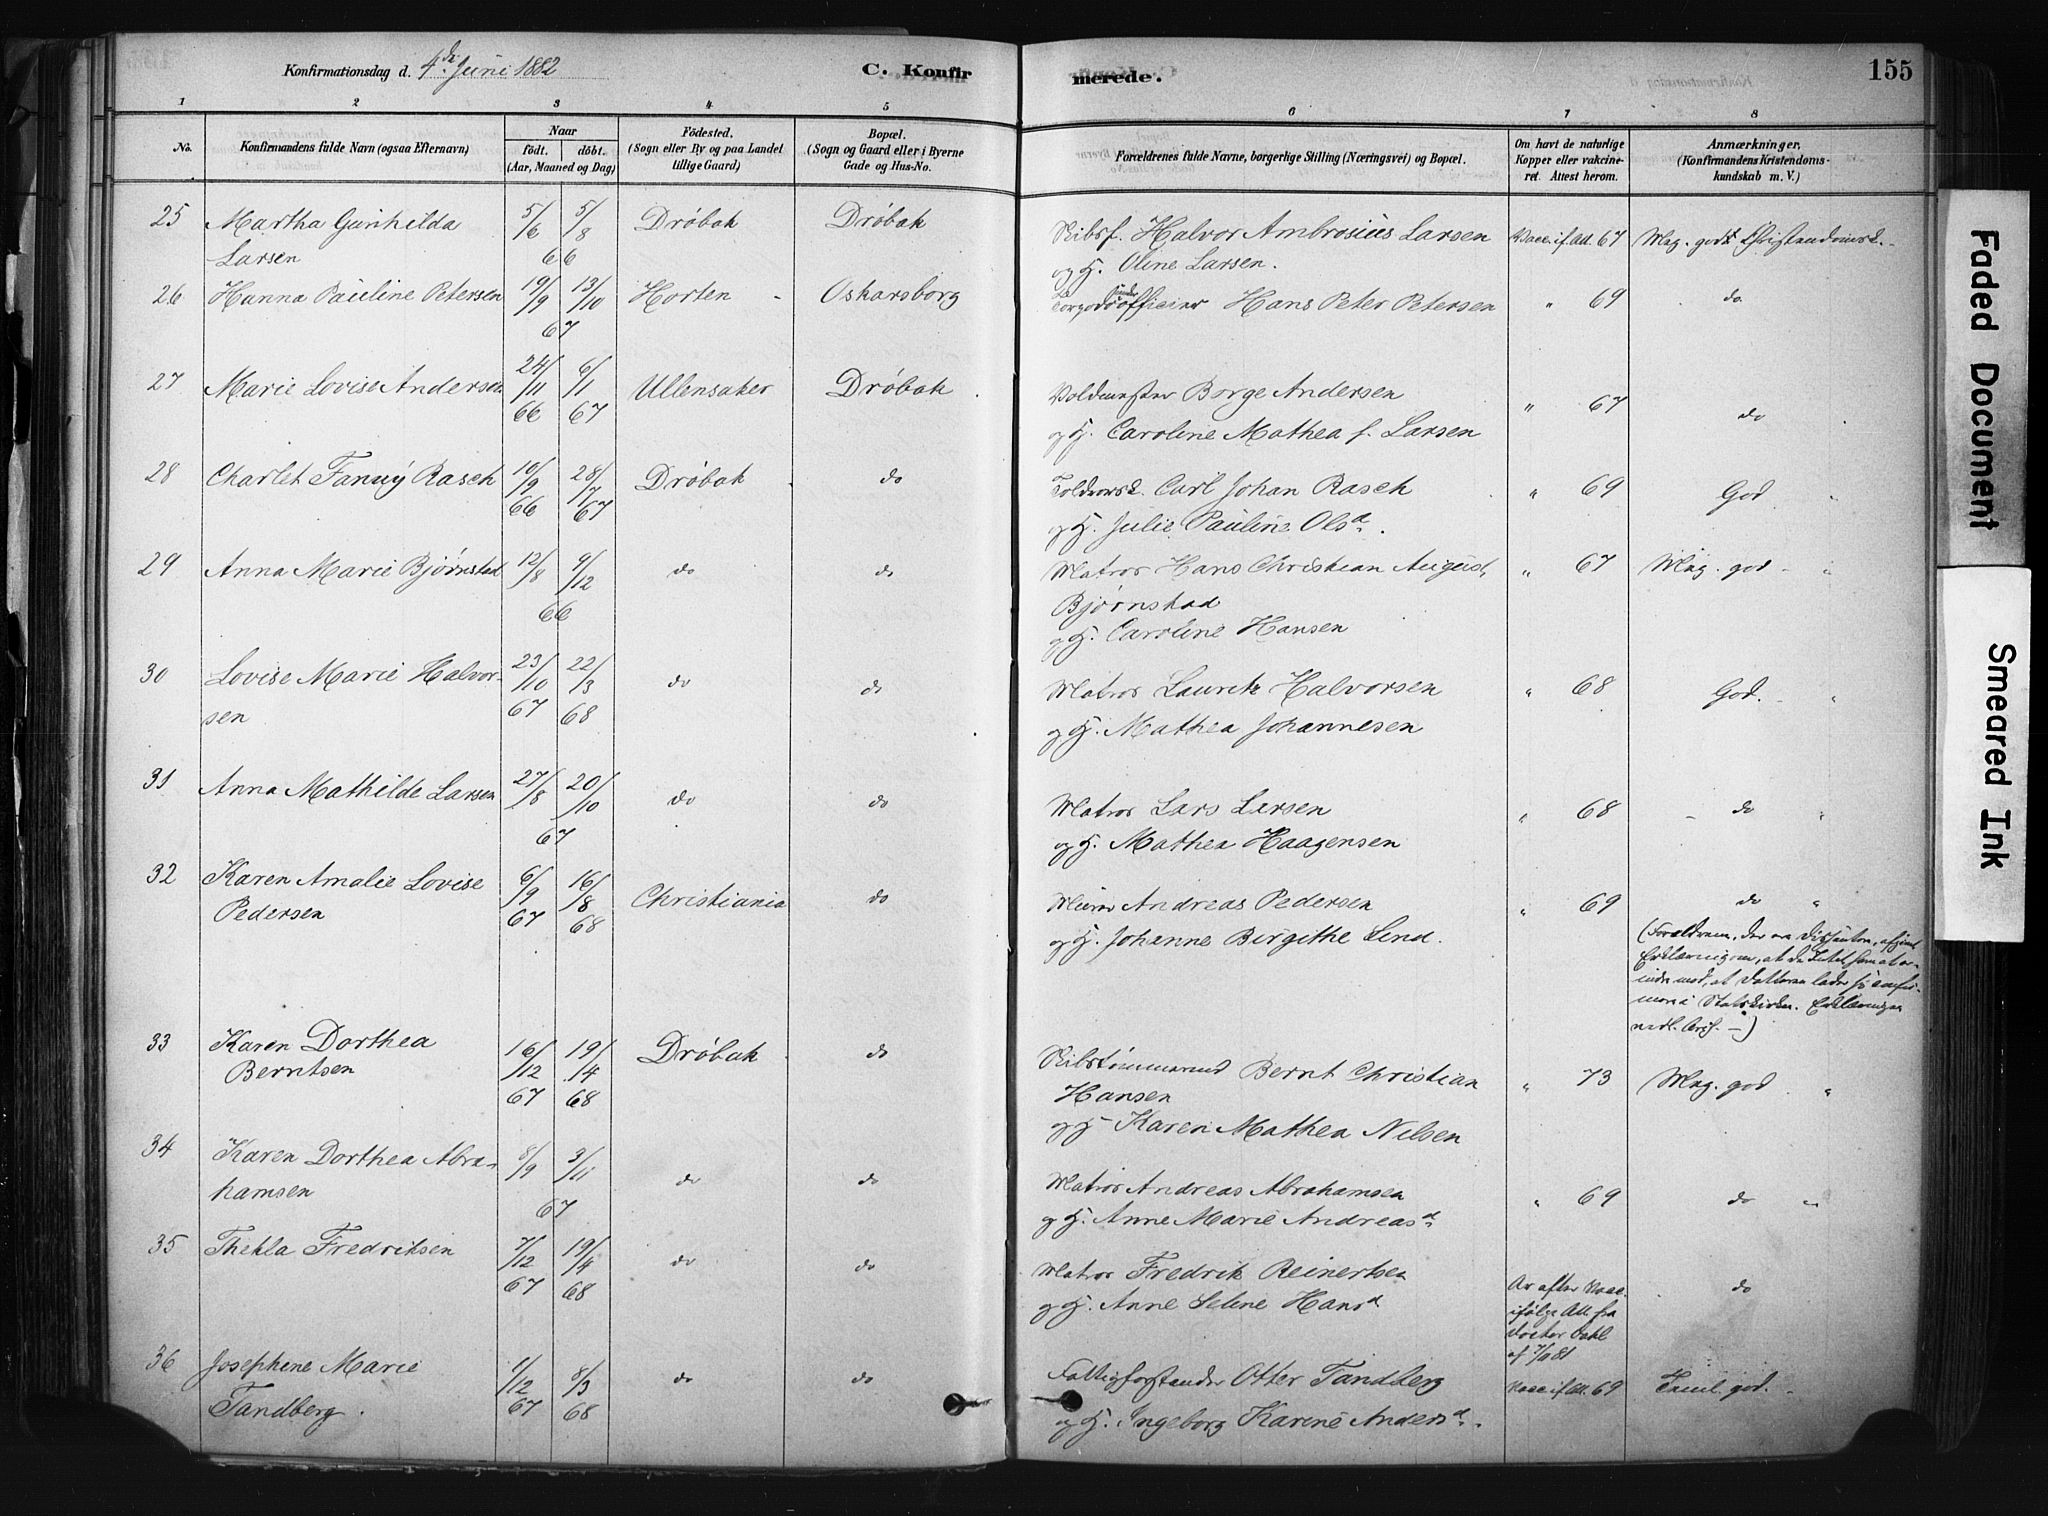 Konfirmationsdag d. 4de Juni 1882
C. Konfirmerede.
155
1 2 3 4 5 6 7 8
No.
Konfirmandens fulde Navn (ogsaa Efternavn)
Naar
födt. döbt.
(Aar, Maaned og Dag)
Födested.
(Sogn eller By og paa Landet
tillige Gaard)
Bopæl.
(Sogn og Gaard eller i Byerne
Gade og Hus-No.
Forældrenes fulde Navne, borgerlige Stilling (Næringsvei) og Bopæl.
Om havt de naturlige
Kopper eller vakcine-
ret. Attest herom.
Anmærkninger.
(Konfirmandens Kristendoms-
kundskab m. V.)
25 Martha Gunhilda 5/6 5/8 Drøbak Drøbak Skibsf. Halvor Ambrosius Larsen Vacc. if. Att. 67 Meg. godt Christendomsk.
Larsen 66 og H. Oline Larsen.
26 Hanna Pauline Petersen 19/9 13/10 Horten Oskarsborg Torpedounderofficier Hans Peter Petersen " 69 do.
67
27 Marie Lovise Andersen 24/11 6/1 Ullensaker Drøbak Voldmester Borge Andersen " 67 do
66 67 og H. Caroline Mathea f. Larsen
28 Charlet Fanny Rasch 10/9 28/7 Drøbak do Toldrorsk. Carl Johan Rasch " 69 God "
66 67 og H. Julie Pauline Olsd.
29 Anna Marie Bjørnstad 12/8 9/12 do do Matros Hans Christian August " 67 Meg. god - "
66 Bjørnstad
og H. Caroline Hansen
30 Lovise Marie Halvor- 23/10 22/3 do do Matros Lauritz Halvorsen " 68 God. - "
sen 67 68 og H. Mathea Johannesen
31 Anna Mathilde Larsen 27/8 20/10 do do Matros Lars Larsen " 68 - do "
67 og H. Mathea Haagensen
32 Karen Amalie Lovise 6/9 16/8 Christiania do Murer Andreas Pedersen " 69 do "
Pedersen 67 68 og H. Johanne Birgithe Lind.
(Forældrene, der ere Dissentere, afgivet
Erklæring om, at de Intet have at er-
indre mod, at Datteren lader sig confir-
mere i Statskirken. Erklæringen
vedl. Arch. -)
33 Karen Dorthea 16/12 19/4 Drøbak do Skibstømmermd Bernt Christian " 73 Meg. god "
Berntsen 67 68 Hansen
og H Karen Mathea Nilsen
34 Karen Dorthea Abra- 8/9 3/11 do do Matros Andreas Abrahamsen " 69 do "
hamsen 67 og H. Anne Marie Andreasd.
35 Thekla Fredriksen 7/12 19/4 do do Matros Fredrik Reinertsen Ar efter Vacc. do
67 68 og H. Anne Helene Hansd ifølge Att. fra
Doctor Dahl
af 7/11 81
36 Josephine Marie 1/12 8/3 do do Fattigforstander Otter Tandberg Vacc if. Att. 69 Teml. god. -
Tandberg. 67 68 og H. Ingeborg Karine Andersd.
Faded Document
Smeared Ink